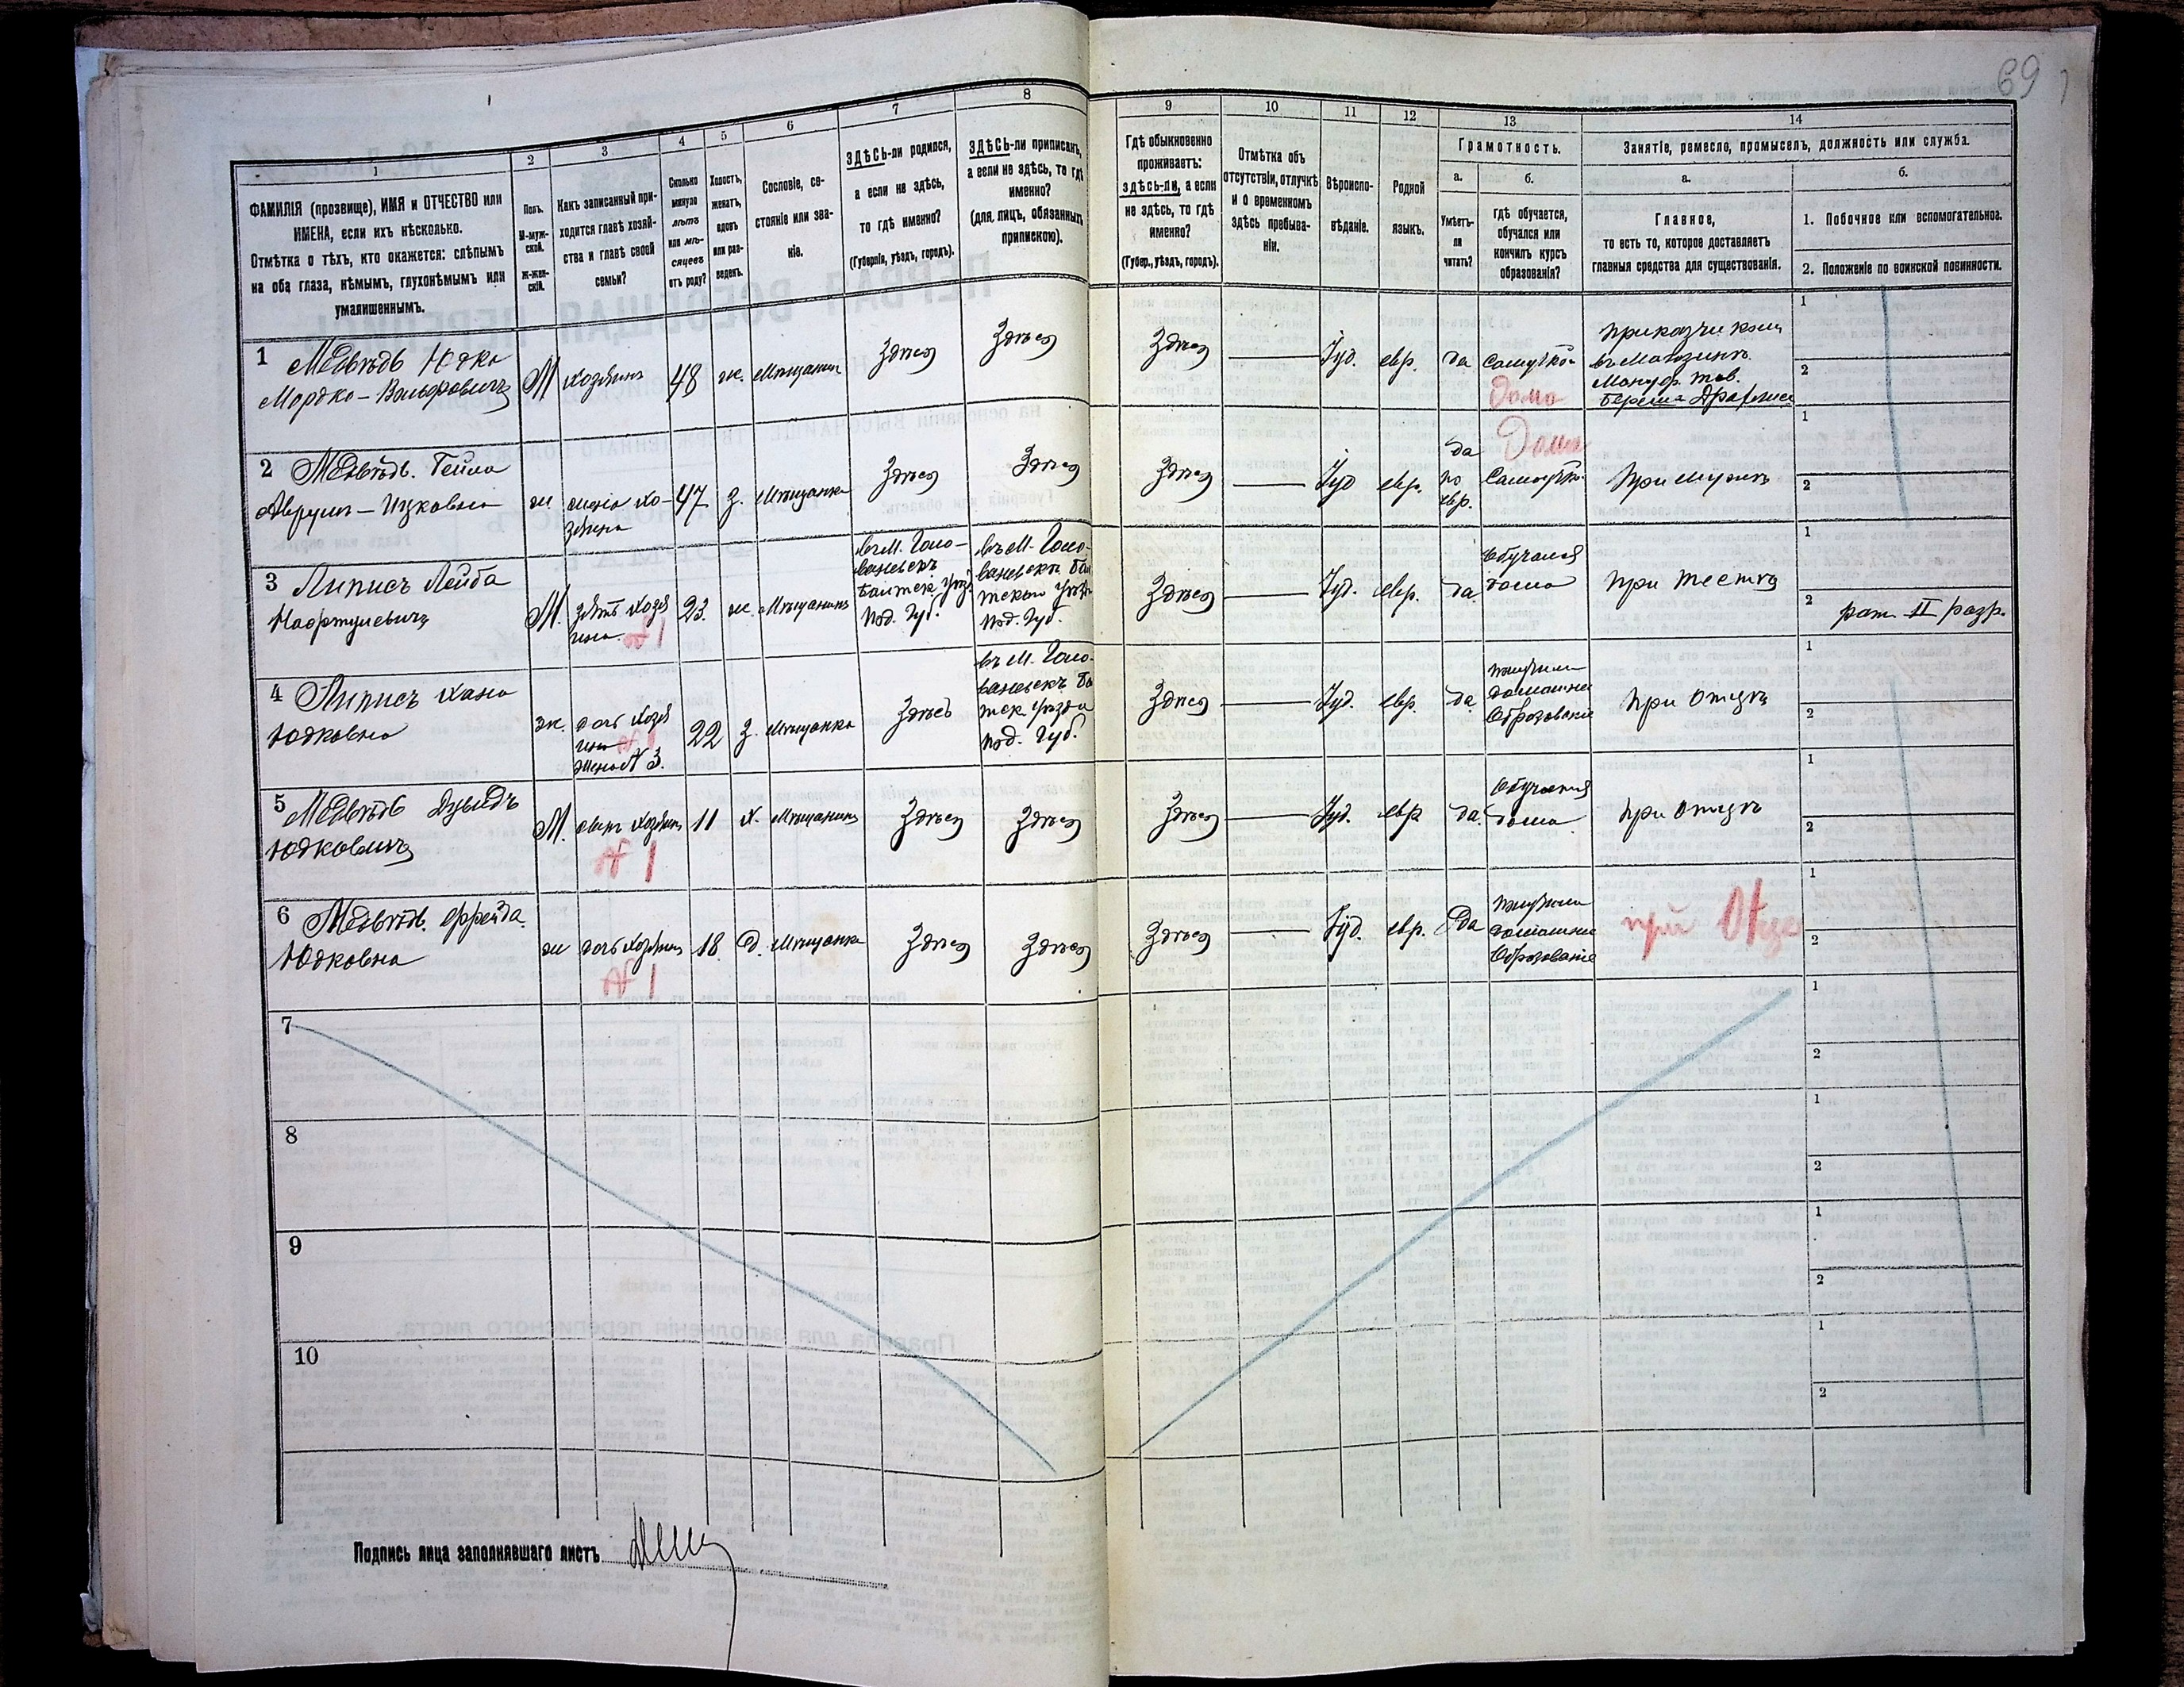 69
1
2
3
4
5
6
7
8
9
10
11
12
13
14
ФАМИЛІЯ (прозвище), ИМЯ и ОТЧЕСТВО или
ИМЕНА, если ихъ нѣсколько.
Отмѣтка о тѣхъ, кто окажется: слѣпымъ
на оба глаза, нѣмымъ, глухонѣмымъ или
умалишеннымъ.
Полъ.
М-муж-
ской.
Ж-жен-
скій.
Какъ записанный при-
ходится главѣ хозяй-
ства и главѣ своей
семьи?
Сколько
минуло
лѣтъ
или мѣ-
сяцевъ
отъ роду?
Холостъ,
женатъ,
вдовъ
или раз-
веденъ.
Сословіе, со-
стояніе или зва-
ніе.
ЗДѢСЬ-ли родился,
а если не здѣсь,
то гдѣ именно?
(Губернія, уѣздъ, городъ).
ЗДѢСЬ-ли приписанъ,
а если не здѣсь, то гдѣ
именно?
(для лицъ, обязанныхъ
припискою).
Гдѣ обыкновенно
проживаетъ:
здѣсь-ли, а если
не здѣсь, то гдѣ
именно?
(Губер., уѣздъ, городъ).
Отмѣтка объ
отсутствіи, отлучкѣ
и о временномъ
здѣсь пребыва-
ніи.
Вѣроиспо-
вѣданіе.
Родной
языкъ.
Грамотность.
а.
Умѣетъ-
ли
читать?
б.
Гдѣ обучается,
обучался или
кончилъ курсъ
образованія?
Занятіе, ремесло, промыселъ, должность или служба.
а.
Главное,
то есть то, которое доставляетъ
главныя средства для существованія.
б.
1. Побочное или вспомогательное.
2. Положеніе по воинской повинности.
1 Медвѣдь Юдко
Мордко-Вольфовичъ
М
хозяинъ
48
ж.
Мѣщанин
Здѣсь
Здѣсь
Здѣсь
Іуд.
евр.
да
Самоучкой
Дома
приказчикомъ
въ Магазинѣ
Мануф. тов.
1
2
2 Медвѣдь Гейла
Аврумъ-Ицковна
ж.
жена хо-
зяина
47
з.
Мѣщанка
Здѣсь
Здѣсь
Здѣсь
Іуд
евр.
да
по
евр.
Дома
Самоучкой
при мужѣ
1
2
3 Липисъ Лейба
М.
зять хозя
ина
№ 1
23.
ж.
Мѣщанинъ
въ М. Голо-
ваневскъ
Балтск. уѣз.
Под. Губ.
въ М. Голо-
Под. Губ.
Здѣсь
Іуд.
евр.
да.
Обучался
дома
при тестѣ
1
2 рат. II разр.
4 Липисъ Хана
Юдковна
ж.
дочь хозя
ина № 1
жена № 3.
22
з.
Мѣщанка
Здѣсь
въ М. Голо-
Под. Губ.
Здѣсь
Іуд.
евр.
да
получила
домашнее
Образованіе
при отцѣ
1
2
5 Медвѣдь Дувидъ
Юдковичъ
М.
сынъ хозяина
№ 1
11
х.
Мѣщанинъ
Здѣсь
Здѣсь
Здѣсь
Іуд.
евр
да.
Обучался
дома.
при отцѣ
1
2
6 Медвѣдь. Фрейда
Юдковна
ж
дочь хозяина
№ 1
18
д.
Мѣщанка
Здѣсь
Здѣсь
Здѣсь
Іуд.
евр.
да
получила
домашнее
Образованіе
при Отце
1
2
7
1
2
8
1
2
9
1
2
10
1
2
Подпись лица заполнявшаго листъ